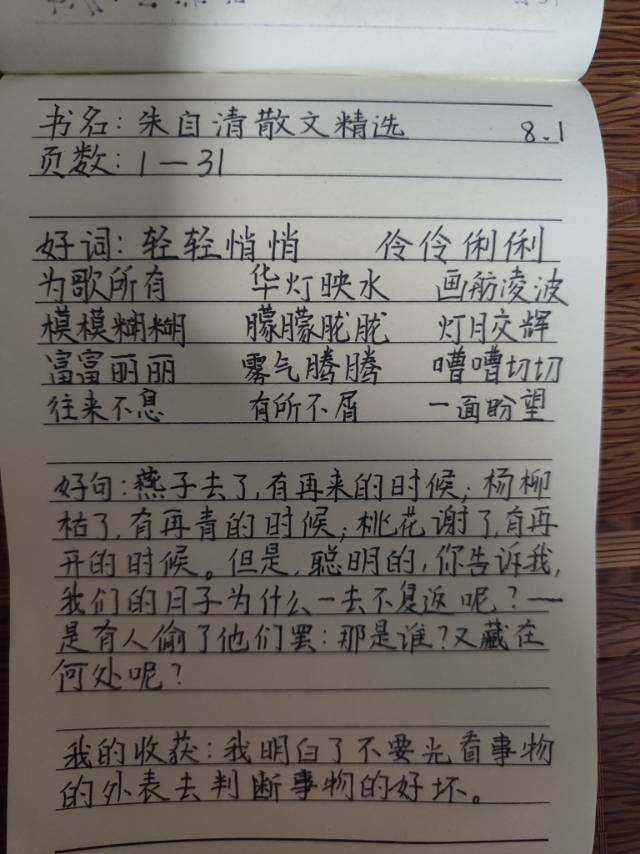 书名：朱自清散文精选 8.1
页数：1—31
好词：轻轻悄悄 伶伶俐俐
为歌所有 华灯映水 画舫凌波
模模糊糊 朦朦胧胧 灯月交辉
富富丽丽 雾气腾腾 嘈嘈切切
往来不息 有所不屑 一面盼望
好句：燕子去了，有再来的时候；杨柳
枯了，有再青的时候；桃花谢了，有再
开的时候。但是，聪明的，你告诉我，
我们的日子为什么一去不复返呢？—
是有人偷了他们罢：那是谁？又藏在
何处呢？
我的收获：我明白了不要光看事物
的外表去判断事物的好坏。